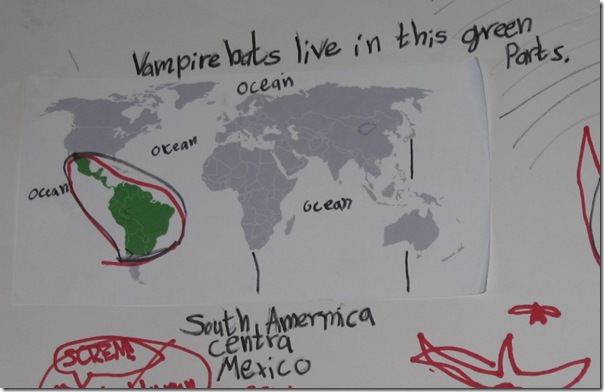 Vampire bats live in this green
Parts.
ocean
okean
ocean
ocean
South Amermica
centra
Mexico
SCREM!